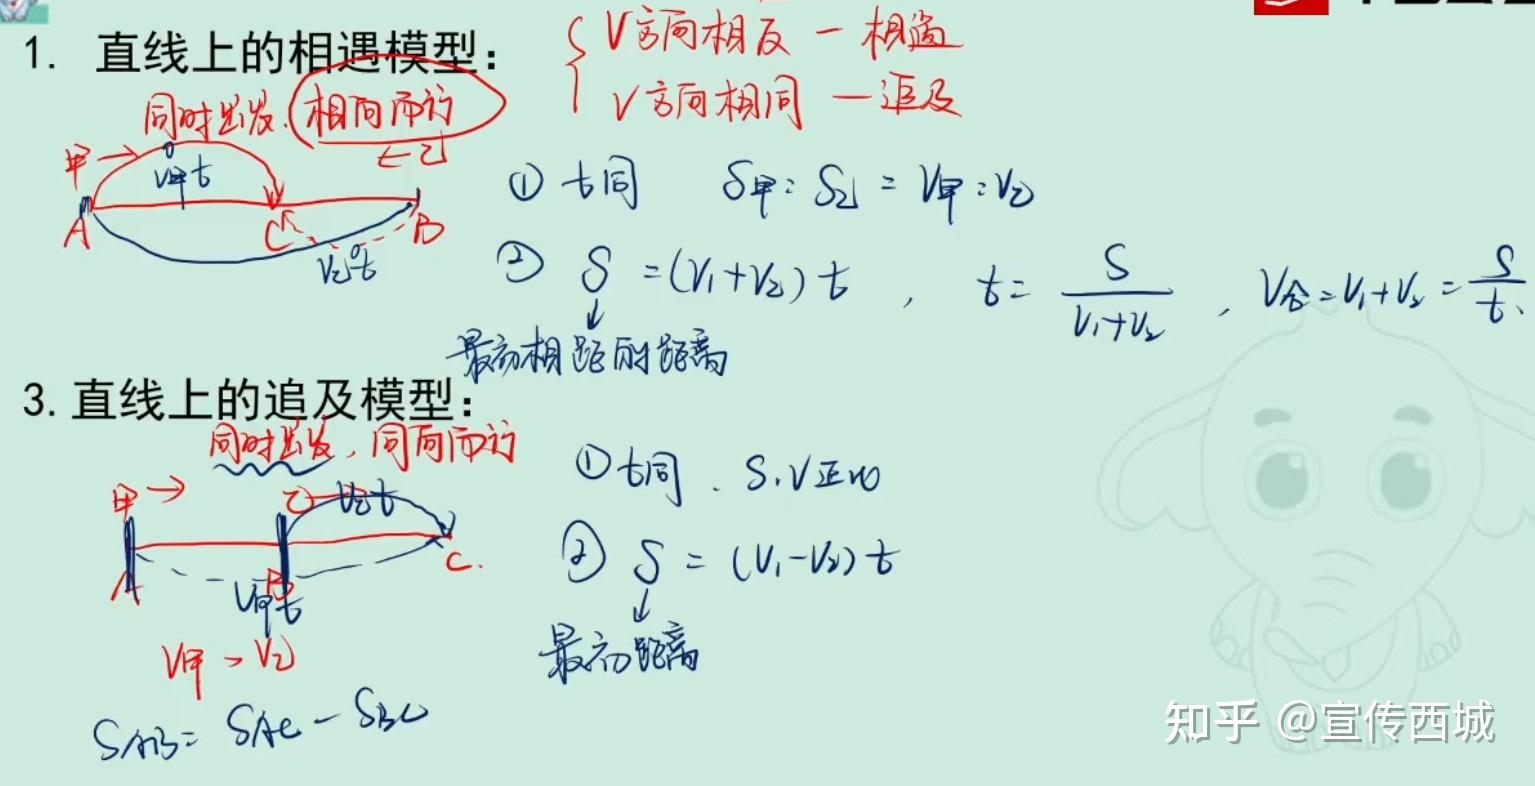 V方向相反 — 相遇
1. 直线上的相遇模型：
V方向相同 — 追及
同时出发，相向而行
甲→ ←乙
V甲t
A C B
V乙t
① t同 S甲：S乙 = V甲：V乙
② S =(V₁+V₂) t ， t= S/(V₁+V₂) ，V合=V₁+V₂=S/t.
最初相距的距离
3. 直线上的追及模型：
同时出发，同向而行
甲→ 乙→ V乙t
A B C.
V甲t
V甲 > V乙
S_AB= S_AC - S_BC
① t同 . S、V正比
② S = (V₁-V₂) t
最初距离
知乎 @宣传西城